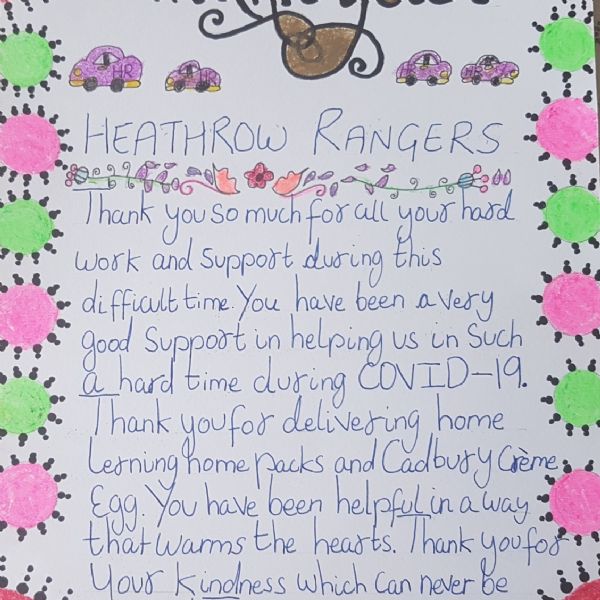 HR
HEATHROW RANGERS
Thank you so much for all your hard
work and support during this
difficult time. You have been a very
good support in helping us in such
a hard time during COVID-19.
Thank you for delivering home
lerning home packs and Cadbury Crème
Egg. You have been helpful in a way
that warms the hearts. Thank you for
your kindness which can never be